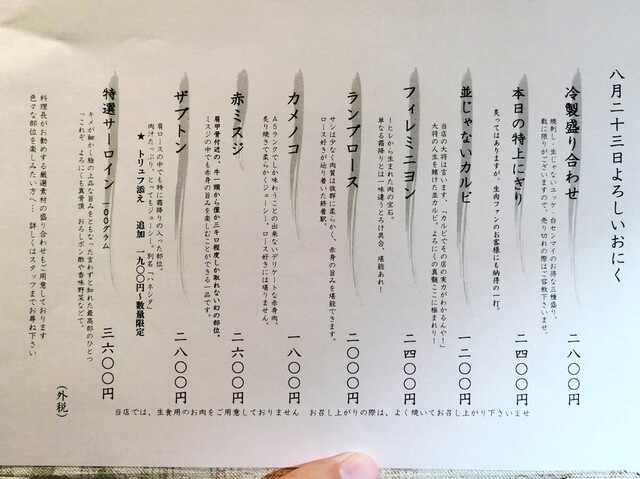 八月二十三日よろしいおにく
冷製盛り合わせ 二八〇〇円
焼刺し・生じゃないユッケ・白センマイのお得な三種盛り。
数に限りがございますので、売り切れの際はご容赦下さいませ。
本日の特上にぎり 二四〇〇円
炙ってはありますが、生肉ファンのお客様にも納得の一打。
並じゃないカルビ 一二〇〇円
当店の大将は言います、「カルビでその店の実力がわかるんや!」
大将の人生を賭けた並カルビ。よろにくの真髄ここに極まれり!
フィレミニヨン 二四〇〇円
ヒレから生まれた肉の宝石。
単なる霜降りとは一味違うとろけ具合、堪能あれ!
ランプロース 二〇〇〇円
サシは少なく肉質は抜群に柔らかく、赤身の旨みを堪能できます。
ロース好きが辿り着いた終着駅。
カメノコ 一八〇〇円
A5ランクでしか味わうことの出来ないデリケートな赤身肉。
炙り焼きで柔らかくジューシー。ロース好きには堪りません。
赤ミスジ 二六〇〇円
肩甲骨付近の、牛一頭から僅か三キロ程度しか取れない幻の部位。
ミスジの中でも赤身の旨みを楽しむことができる一品です。
ザブトン 二八〇〇円
肩ロースの中でも特に霜降りの入った部位。
肉汁たっぷり、とってもジューシー。別名「ハネシタ」
★ トリュフ添え 追加 一九〇〇円~数量限定
特選サーロイン 一〇〇グラム 三六〇〇円
キメが細かく脂の上品な旨みをともなった言わずと知れた最高部のひとつ
「これぞ、よろにくも真骨頂」おろしポン酢や香味野菜などで。
料理長がお勧めする厳選素材の盛り合わせもご用意しております
色々な部位を楽しみたい方へ… 詳しくはスタッフまでお尋ね下さい
(外税)
当店では、生食用のお肉をご用意しておりません お召し上がりの際は、よく焼いてお召し上がり下さいませ